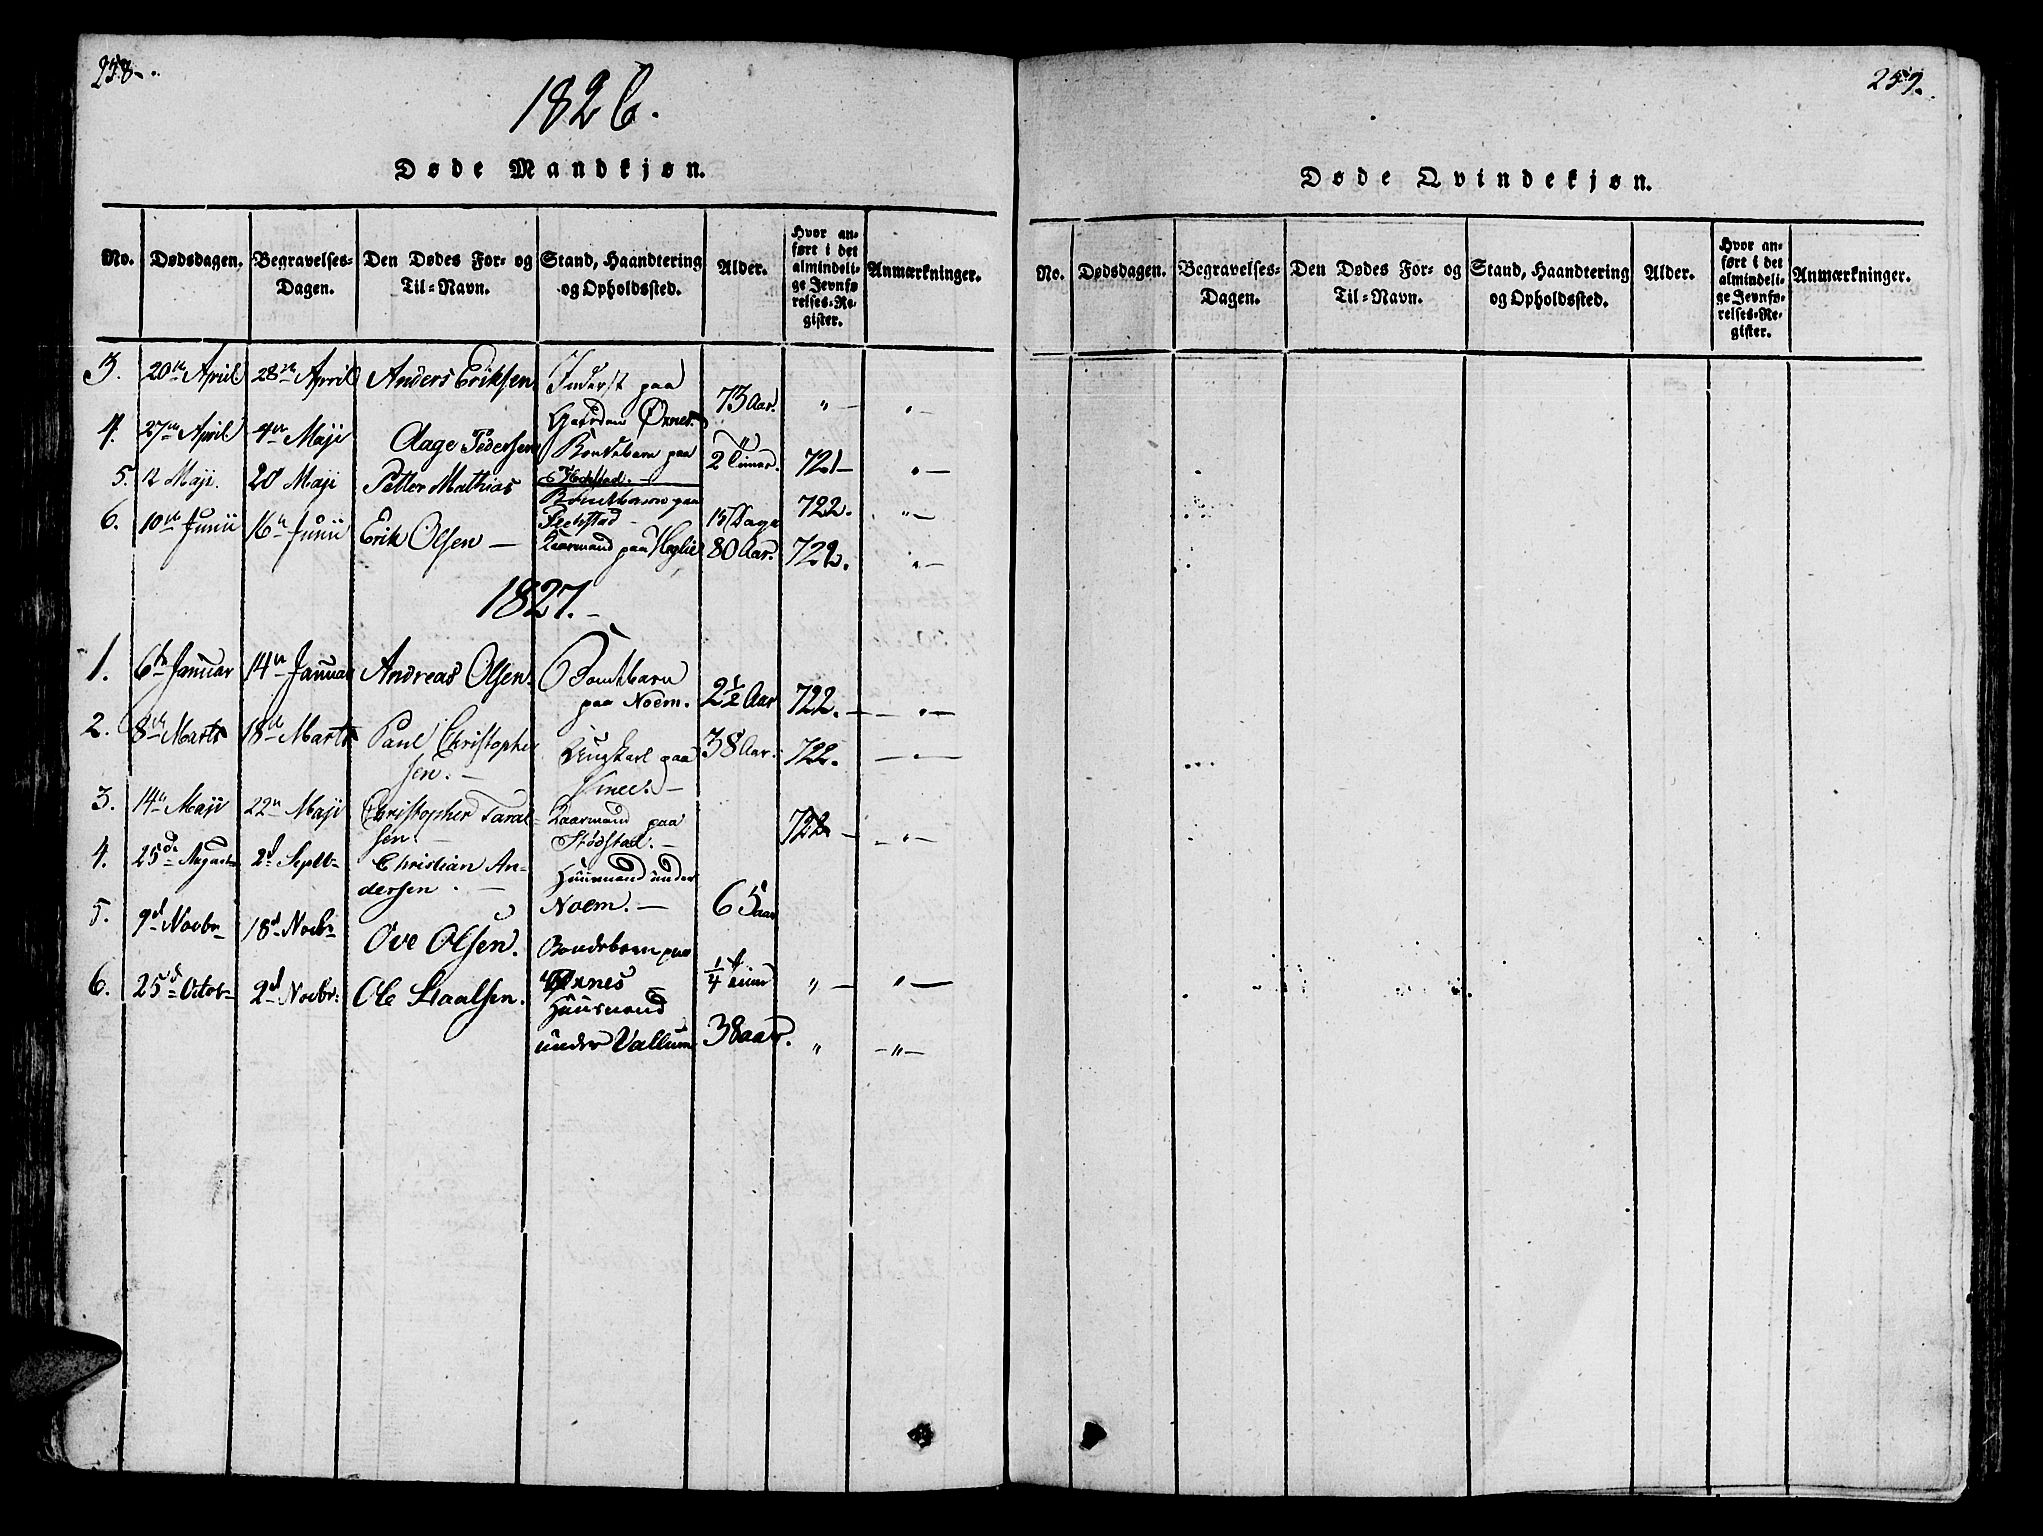 258.
1826.
Døde Mandkjøn.
No. Dødsdagen. Begravelses-Dagen. Den Dødes For- og Til-Navn. Stand, Haandtering og Opholdssted. Alder. Hvor anført i det almindelige Jevnførelses-Register. Anmærkninger.
3. 20de April 28de April Anders Eriksen Inderst paa
Gaarden Øxnes. 73 Aar. " — " —
4. 27de April 4de Maji Aage Pedersen Bondebarn paa
2 Timer. 721 " —
5. 12 Maji. 20 Maji Petter Mathias Bondebarn paa
15 Dage 722. " —
6. 10de Junii 16de Junii Erik Olsen — Kaarmand paa Heglie 80 Aar. 722. " —
1827. —
1. 6te Januar 14de Januar Andreas Olsen. Bondebarn
paa Noem. 2 1/2 Aar 722. — — " —
2. 8de Marts 18de Marts Paul Christopher
sen. — Ungkarl paa 38 Aar. 722. — " —
3. 14de Maji 22de Maji Christopher Taral-
sen. — Kaarmand paa
Stödstad. — 722 — — " —
4. 25de August 2d Septb Christian An-
dersen. — Huusmand under
Noem. — 65 aar
5. 9d Novbr 18d Novbr Ove Olsen. Bondebarn paa
Øxnes — 1/4 time " — " —
6. 25d Octob 2d Novbr. Ole Staalsen. Huusmand
under Vallum 38 aar. " — " —
259.
Døde Qvindekjøn.
No. Dødsdagen. Begravelses-Dagen. Den Dødes For- og Til-Navn. Stand, Haandtering og Opholdssted. Alder. Hvor anført i det almindelige Jevnførelses-Register. Anmærkninger.